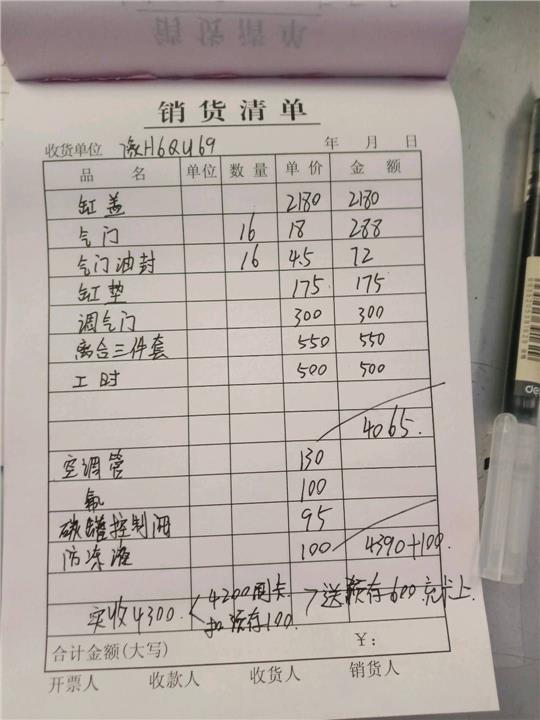 销货清单
收货单位 豫H6QU69 年 月 日
品 名 单位 数量 单价 金 额
缸盖 2180 2180
气门 16 18 288
气门油封 16 4.5 72
缸垫 175 175
调气门 300 300
离合三件套 550 550
工时 500 500
4065.
空调管 130
氟 100
碳罐控制阀 95
防冻液 100 4390+100.
实收4300. 4200刷卡 送预存600充卡上
扣预存100.
合计金额(大写) ¥:
开票人 收款人 收货人 销货人